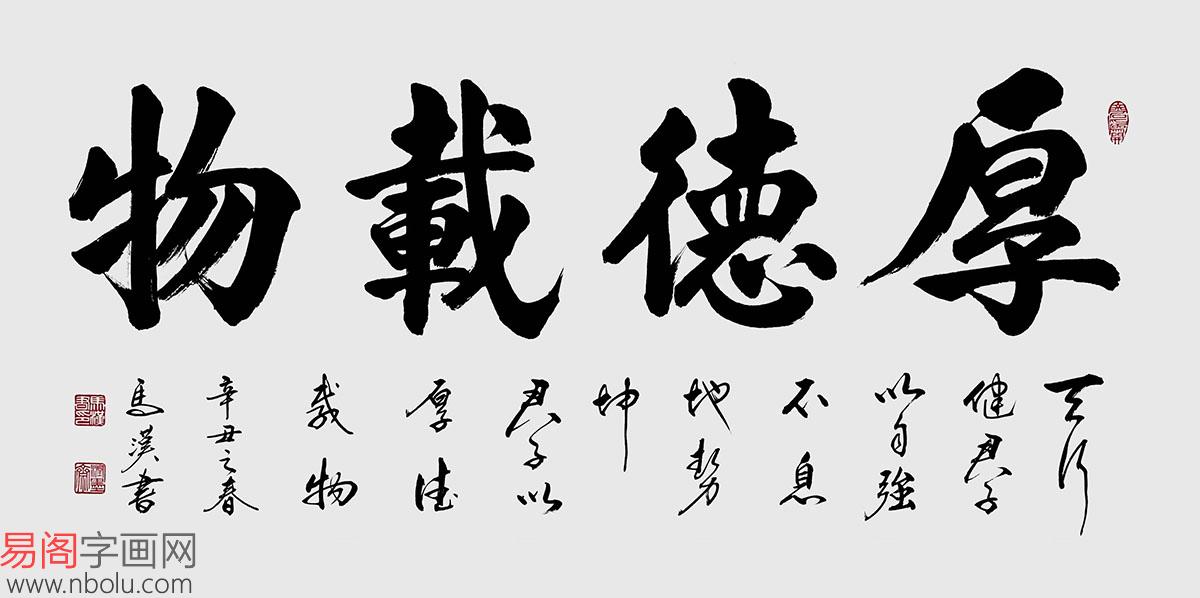 厚德載物
天行
健君子
以自強
不息
地勢
坤
君子以
厚德
載物
辛丑之春
馬漢書
易阁字画网
www.nbolu.com